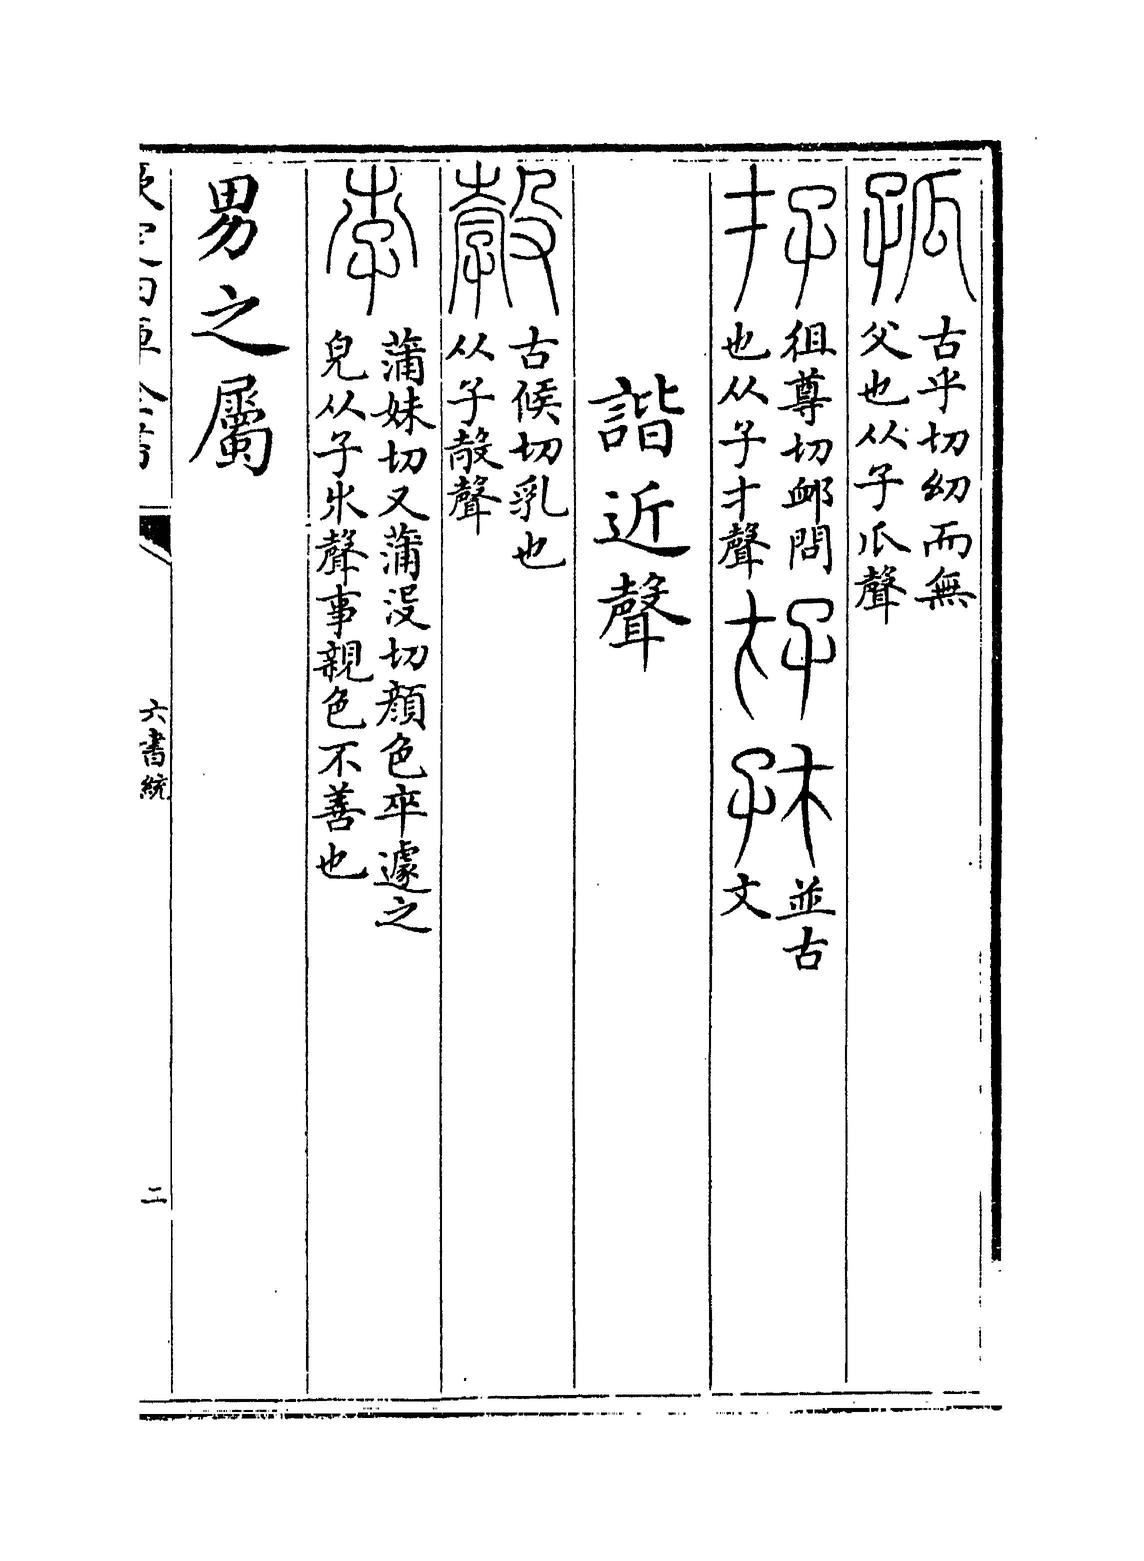 孤 古乎切幼而無
父也从子瓜聲
存 徂尊切卹問
也从子才聲
並古
文
諧近聲
㝅 古候切乳也
从子㱿聲
孛 蒲妹切又蒲没切顔色卒遽之
皃从子𣎵聲事親色不善也
男之屬
欽定四庫全書
六書統
二